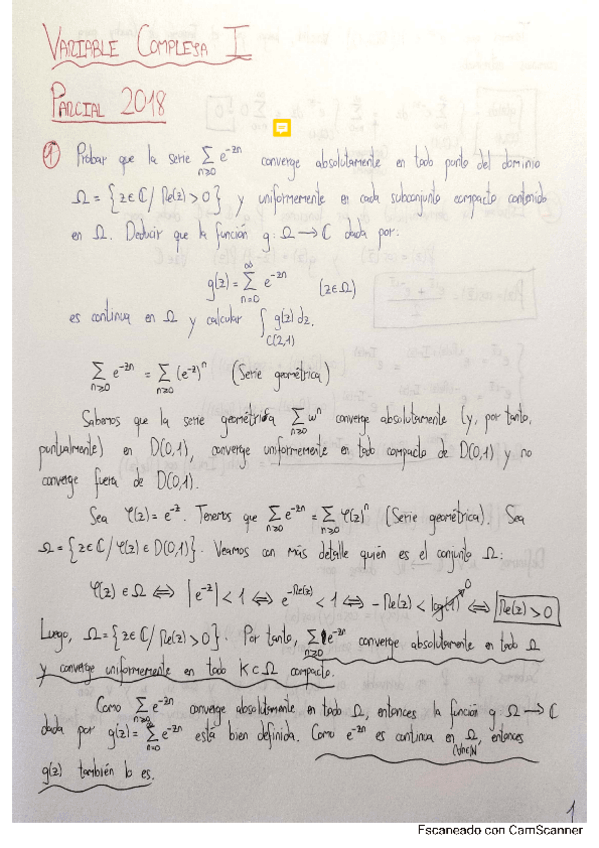 VARIABLE COMPLEJA I
PARCIAL 2018
① Probar que la serie ∑_{n≥0} e^{-zn} converge absolutamente en todo punto del dominio
Ω = {z∈ℂ / Re(z) > 0} y uniformemente en cada subconjunto compacto contenido
en Ω. Deducir que la función g: Ω → ℂ dada por:
g(z) = ∑_{n=0}^{∞} e^{-zn} (z∈Ω)
es continua en Ω y calcular ∫_{C(2,1)} g(z) dz.
∑_{n≥0} e^{-zn} = ∑_{n≥0} (e^{-z})^n (Serie geométrica)
Sabemos que la serie geométrica ∑_{n≥0} ω^n converge absolutamente (y, por tanto,
puntualmente) en D(0,1), converge uniformemente en todo compacto de D(0,1) y no
converge fuera de D(0,1).
Sea φ(z) = e^{-z}. Tenemos que ∑_{n≥0} e^{-zn} = ∑_{n≥0} φ(z)^n (Serie geométrica). Sea
Ω = {z∈ℂ / φ(z) ∈ D(0,1)}. Veamos con más detalle quién es el conjunto Ω:
φ(z) ∈ Ω ⟺ |e^{-z}| < 1 ⟺ e^{-Re(z)} < 1 ⟺ -Re(z) < log(1) 0 ⟺ Re(z) > 0
Luego, Ω = {z∈ℂ / Re(z) > 0}. Por tanto, ∑_{n≥0} e^{-zn} converge absolutamente en todo Ω
y converge uniformemente en todo K⊂Ω compacto.
Como ∑_{n≥0} e^{-zn} converge absolutamente en todo Ω, entonces la función g Ω → ℂ
dada por g(z) = ∑_{n=0}^{∞} e^{-zn} está bien definida. Como e^{-zn} es continua en Ω, ∀n∈ℕ entonces
g(z) también lo es.
1
Escaneado con CamScanner